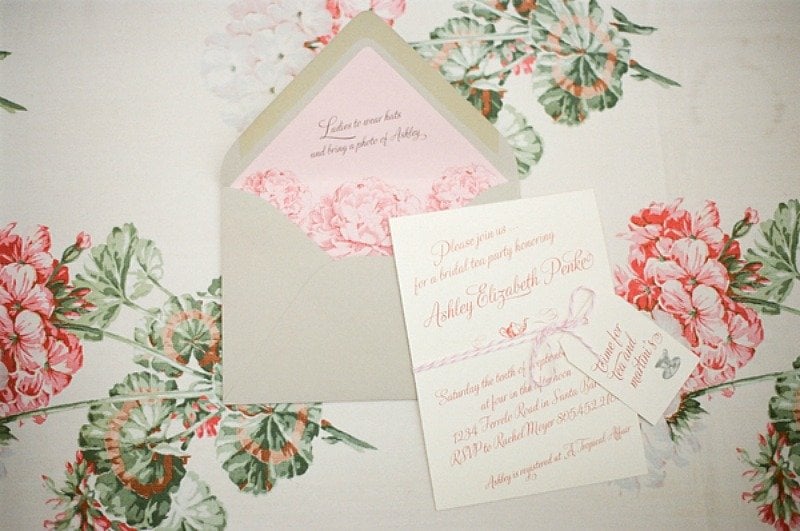 Ladies to wear hats
and bring a photo of Ashley
Please join us ...
for a bridal tea party honoring
Ashley Elizabeth Penke
Saturday the tenth of
at four in the afternoon
1234 Ferrelo Road in Santa
RSVP to Rachel Meyer 805.452.
Ashley is registered at A Tropical Affair
time for
tea and
martini's